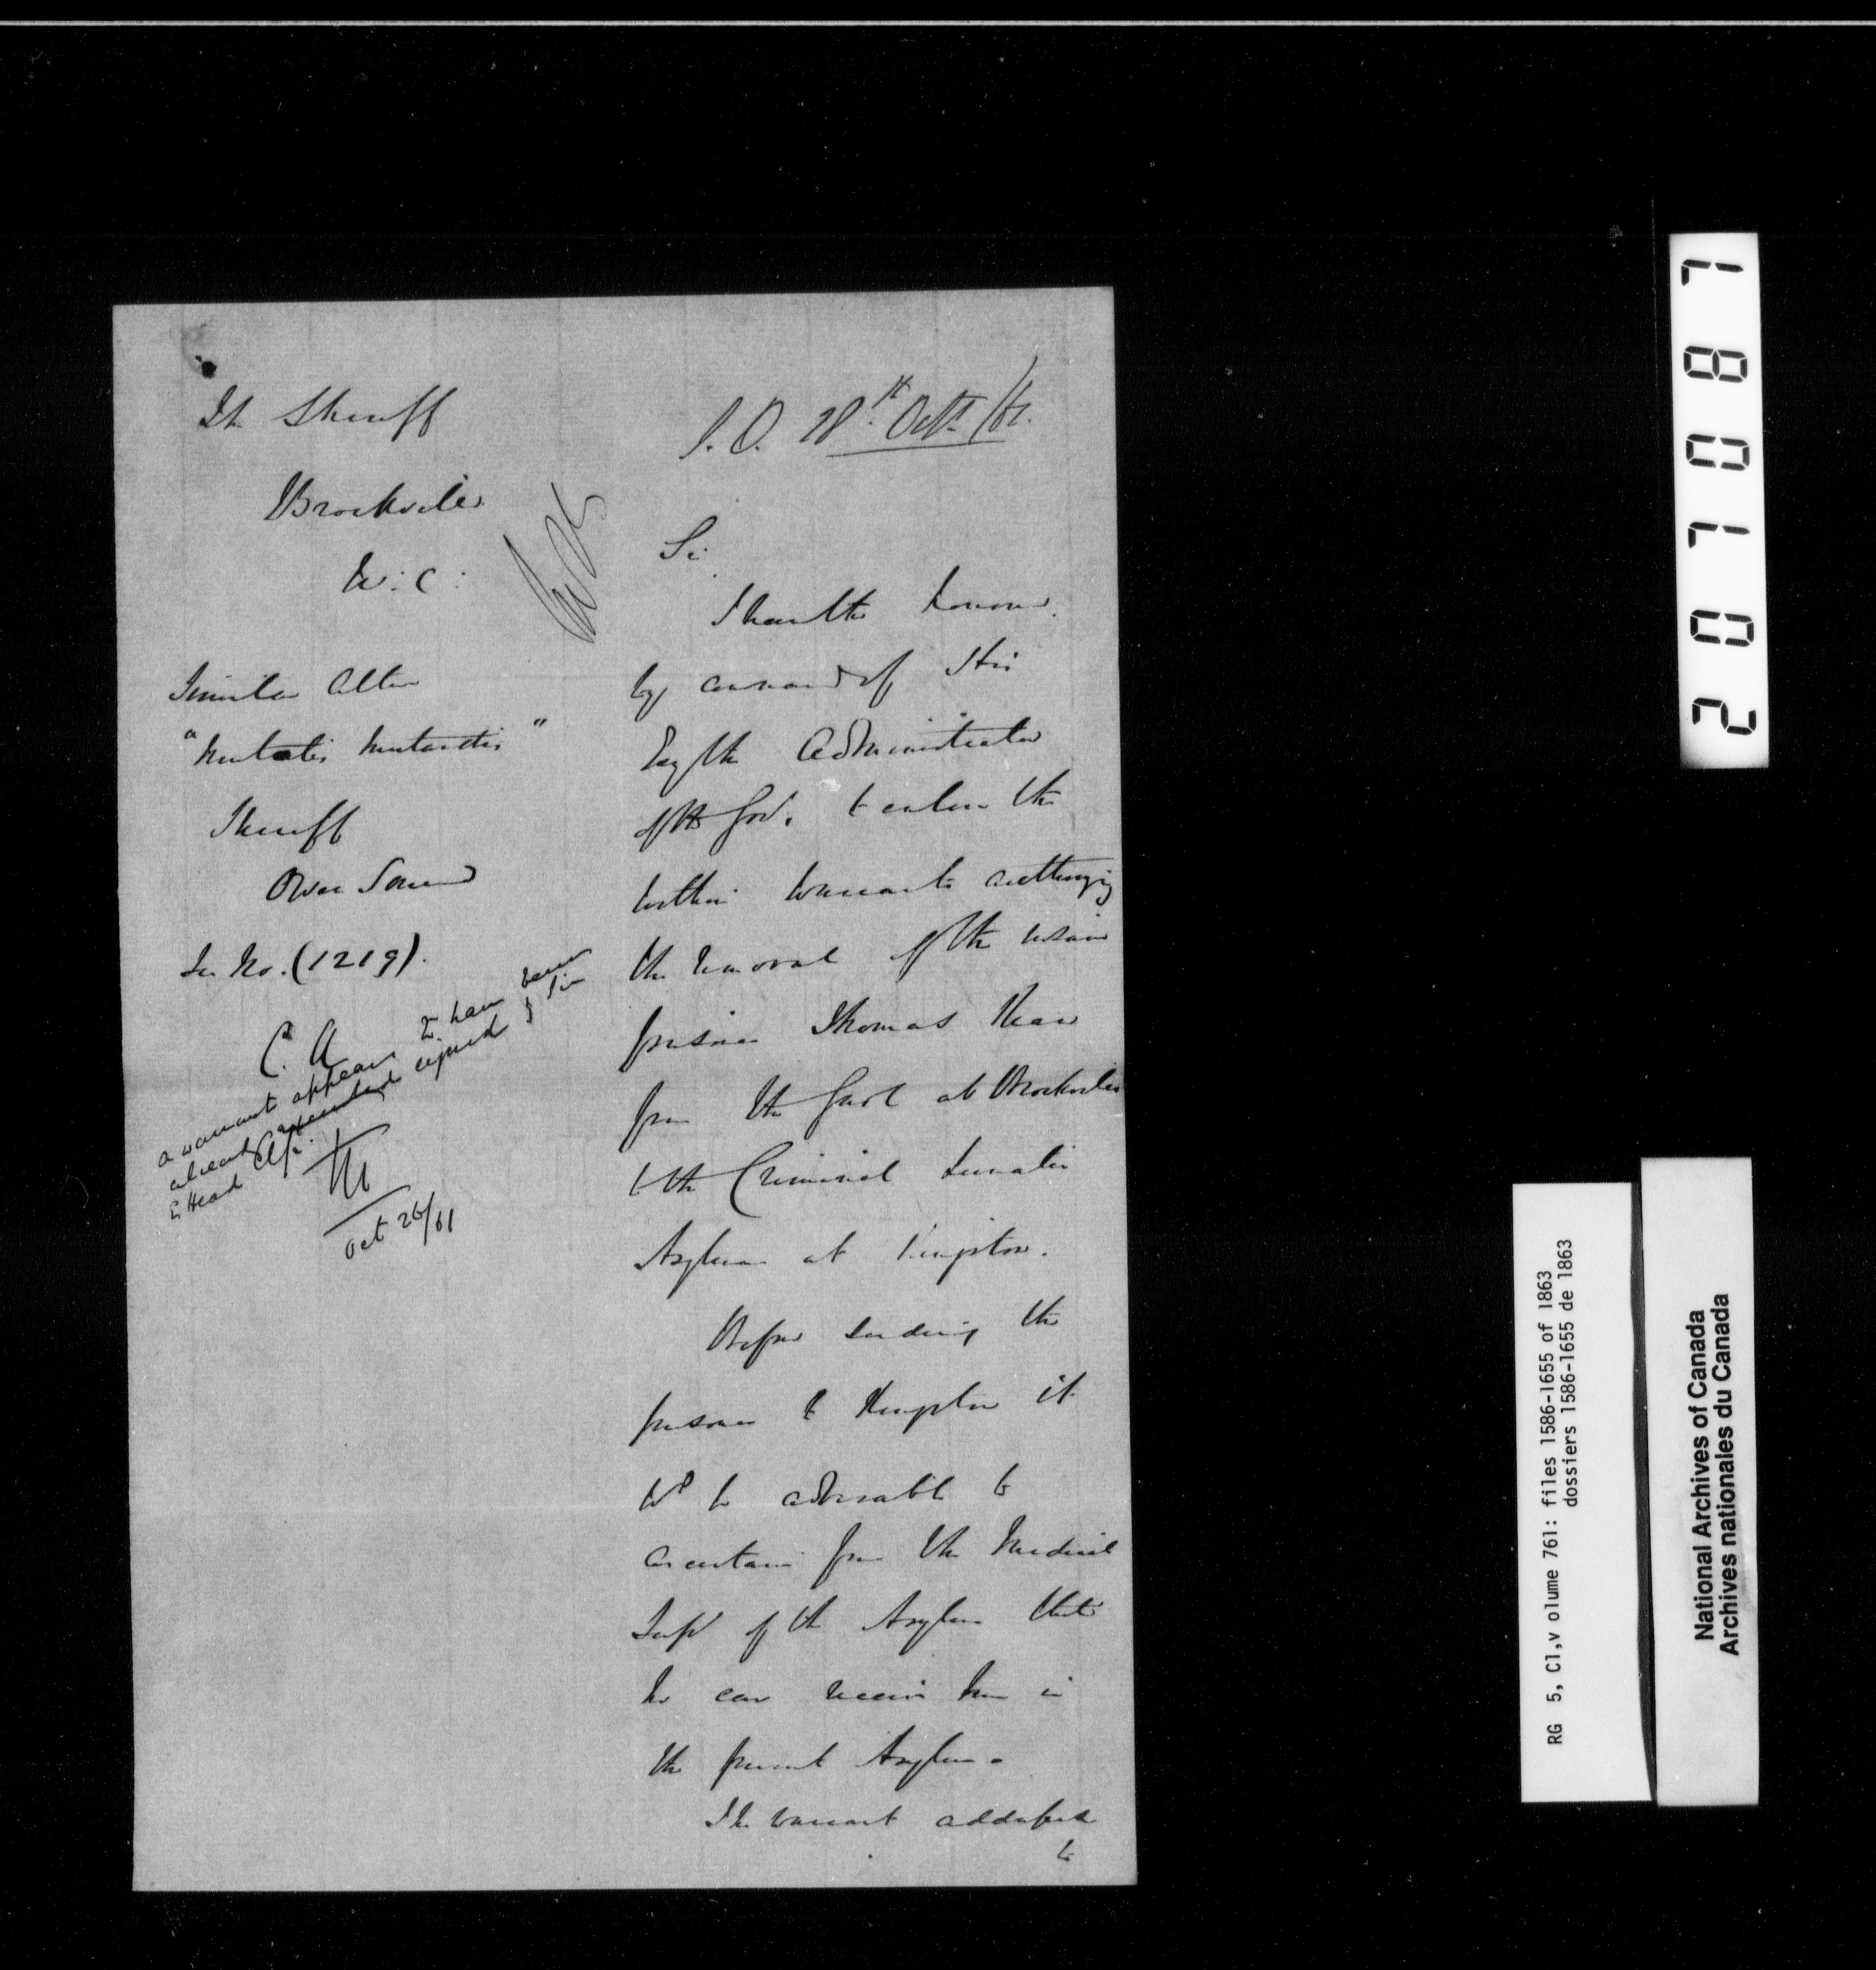 The Sheriff
Brockville
U: C:
Similar letter
"mutatis mutandis"
Sheriff
Owen Sound
See No. (1219).
C. A
a warrant appears to have been
already executed signed by Sir
E Head
Oct 26/61
S. O. 28th Oct. /61.
Sir
I have the honour
by command of His
Exy the Administrator
of the Govt. to enclose the
within warrants authorizing
the removal of the insane
prisoner Thomas Kean
from the Gaol at Brockville
to the Criminal Lunatic
Asylum at Kingston.
Before sending the
prisoner to Kingston it
wd be advisable to
ascertain from the Medical
Supt of the Asylum that
he can receive him in
the present Asylum.
The warrant addressed
to
2010871
RG 5, C1,v olume 761: files 1586-1655 of 1863
dossiers 1586-1655 de 1863
National Archives of Canada
Archives nationales du Canada